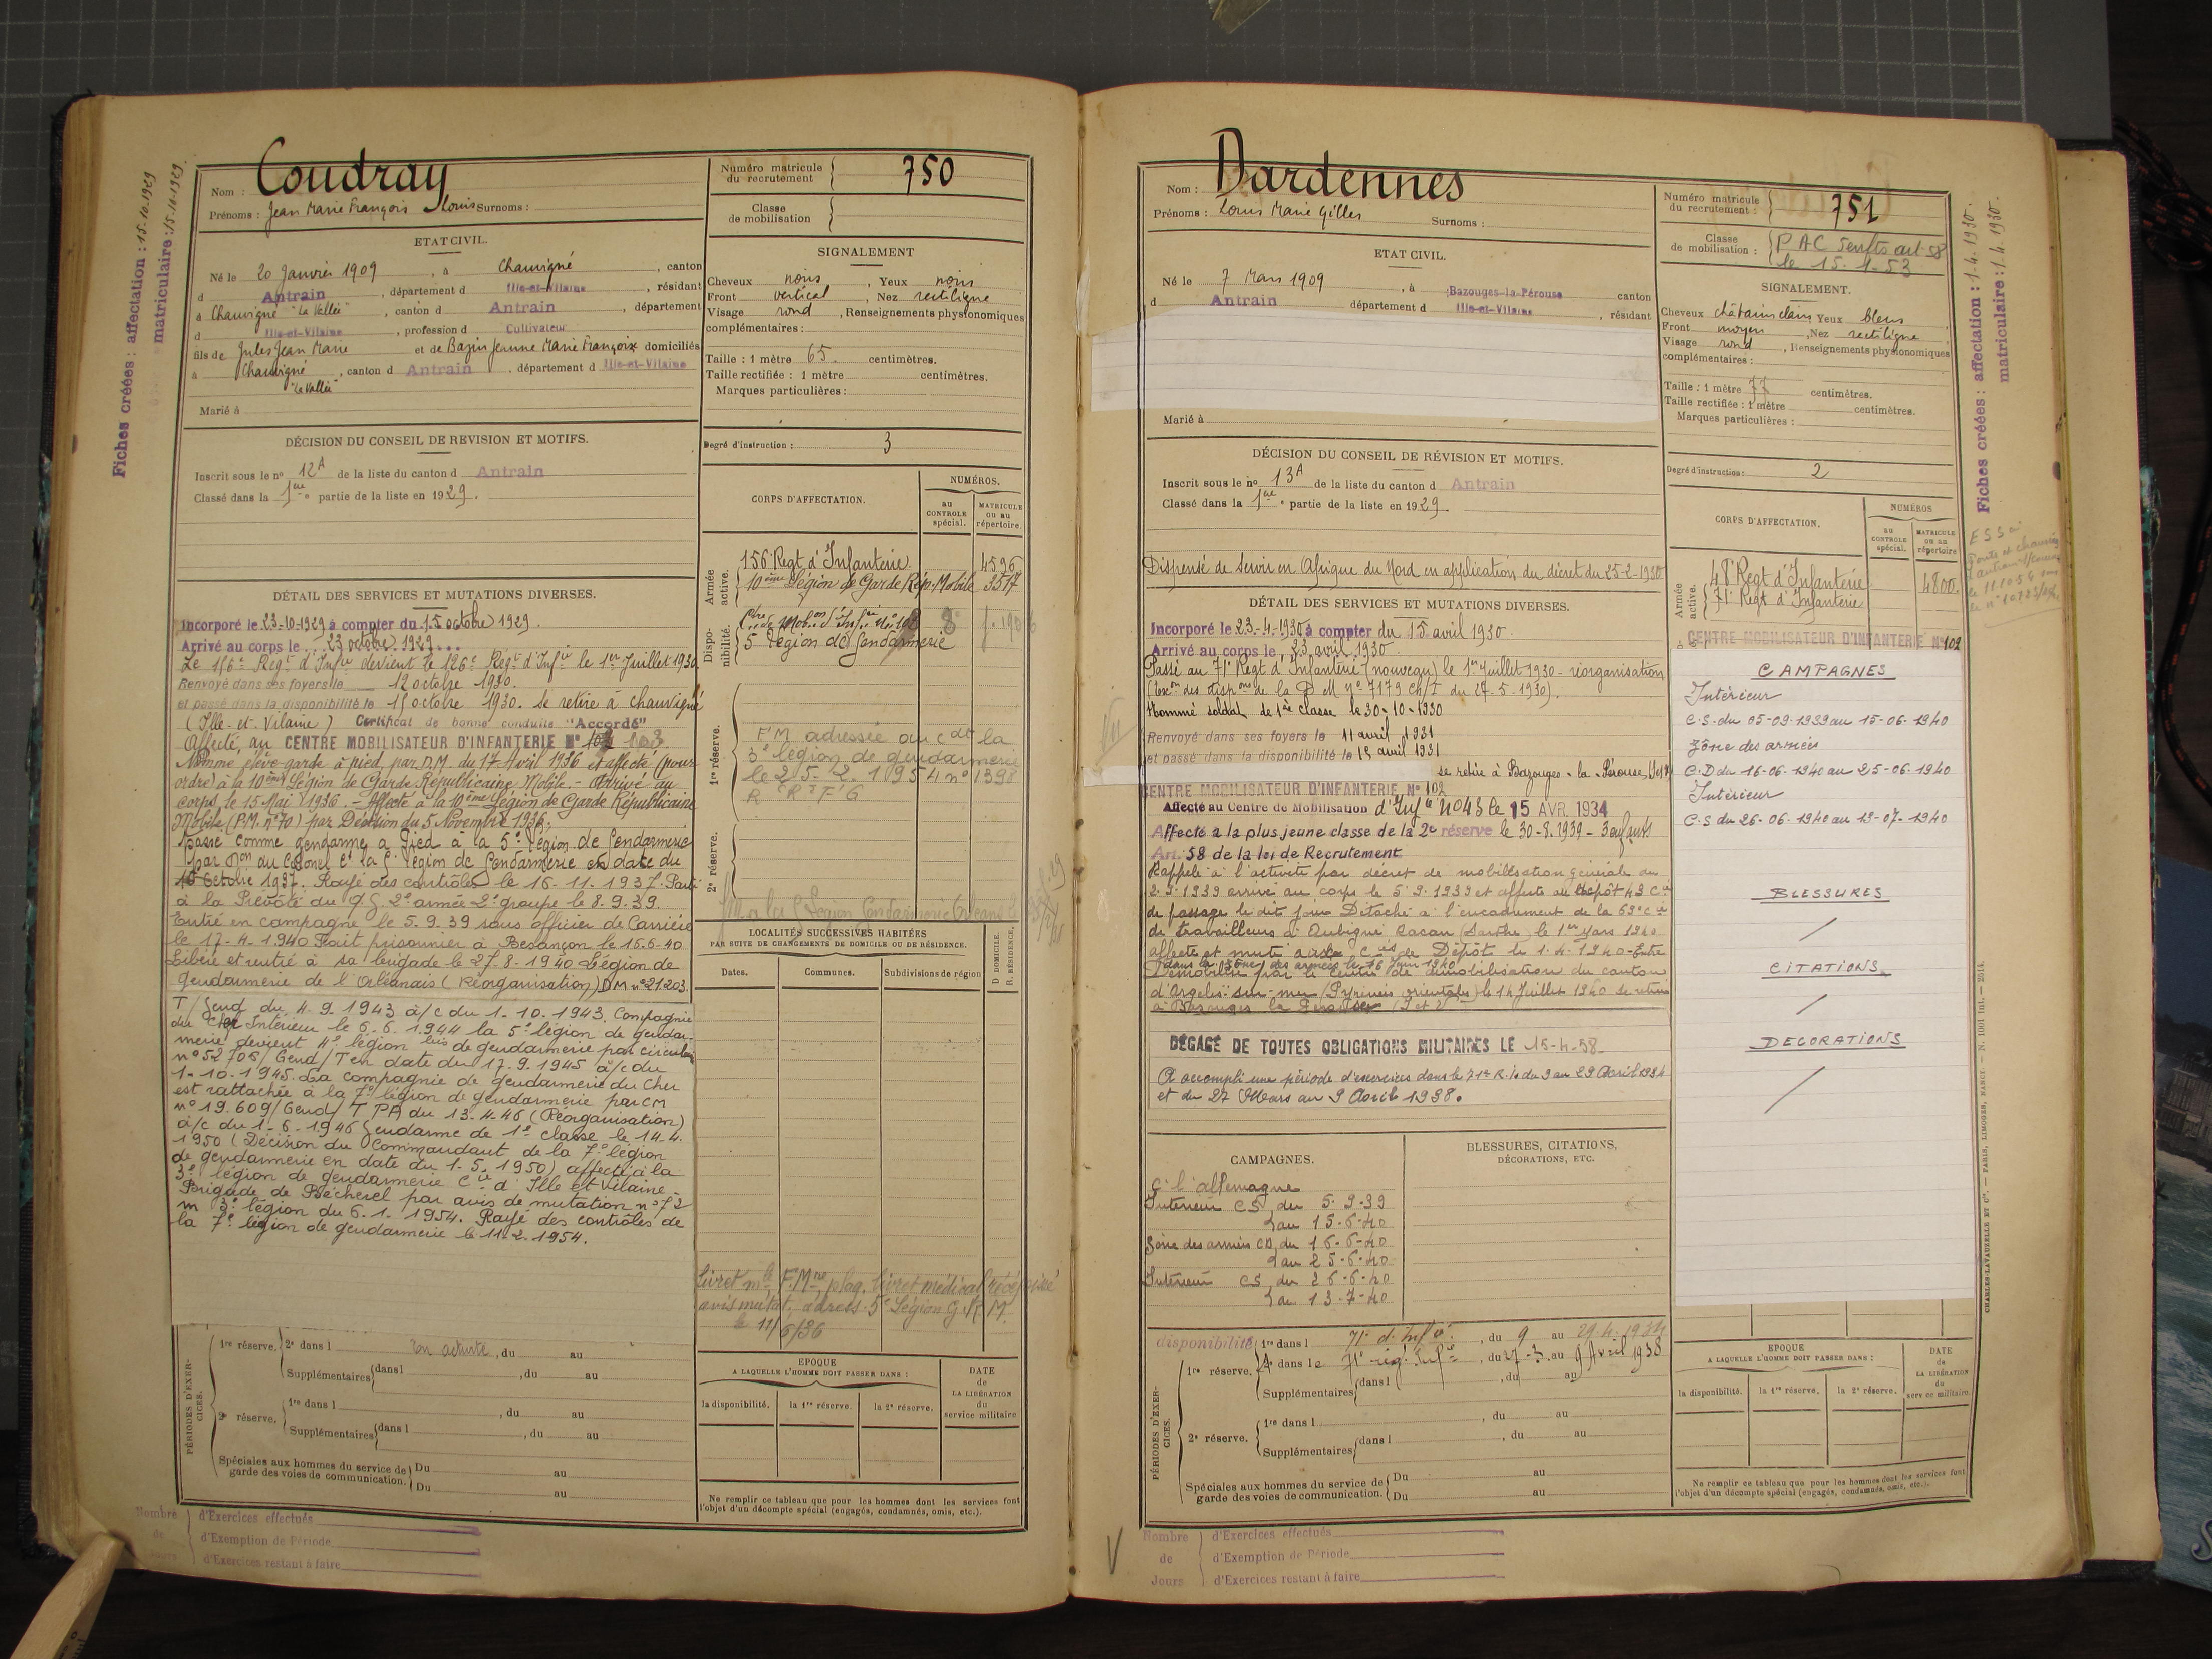 Fiches créées : affectation : 15.10.1929
matriculaire : 15.10.1929.
Nom : Coudray
Prénoms : Jean Marie François Louis Surnoms :
Numéro matricule du recrutement 750
Classe de mobilisation
ETAT CIVIL.
Né le 20 Janvier 1909, à Chauvigné, canton
d Antrain, département d Ille-et-Vilaine, résidant
à Chauvigné "La Vallée", canton d Antrain, département
d Ille-et-Vilaine, profession d Cultivateur
fils de Jules Jean Marie et de Bazin Jeanne Marie Françoise domiciliés
à Chauvigné, canton d Antrain, département d Ille-et-Vilaine
"La Vallée"
Marié à
SIGNALEMENT
Cheveux noirs, Yeux noirs
Front vertical, Nez rectiligne
Visage rond, Renseignements physionomiques
complémentaires :
Taille : 1 mètre 65 centimètres.
Taille rectifiée : 1 mètre centimètres.
Marques particulières :
Degré d'instruction : 3
DÉCISION DU CONSEIL DE REVISION ET MOTIFS.
Inscrit sous le no 12A de la liste du canton d Antrain
Classé dans la 1re partie de la liste en 1929.
CORPS D'AFFECTATION.
NUMÉROS.
au CONTROLE spécial.
MATRICULE ou au répertoire.
Armée active.
156 Regt d'Infanterie 4596
10ème Légion de Garde Rép. Mobile 3517
Disponibilité.
5 Légion de Gendarmerie
1re réserve.
F'M adressée au Cdt la
3e légion de gendarmerie
le 25.2.1954 n° 1398
2e réserve.
DÉTAIL DES SERVICES ET MUTATIONS DIVERSES.
Incorporé le 23-10-1929 à compter du 15 octobre 1929.
Arrivé au corps le 23 octobre 1929
Le 156e Regt d'Infie devient le 126e Regt d'Infie le 1er Juillet 1930
Renvoyé dans ses foyers le 12 octobre 1930.
et passé dans la disponibilité le 15 octobre 1930. Se retire à Chauvigné
(Ille-et-Vilaine) Certificat de bonne conduite "Accordé"
Affecté au CENTRE MOBILISATEUR D'INFANTERIE N° 103
Nommé élève garde à pied, par D.M. du 17 Avril 1936 et affecté (pour
ordre) à la 10ème Légion de Garde Républicaine Mobile. - Arrivé au
corps le 15 Mai 1936. - Affecté à la 10ème Légion de Garde Républicaine
Mobile (P.M. n°70) par Décision du 5 Novembre 1936.
Passé comme gendarme à Pied à la 5e Légion de Gendarmerie
par Don du Colonel Ct la 5e Légion de Gendarmerie en date du
16 Octobre 1937. Rayé des contrôles le 15-11-1937. Parti
à la Prévôté du Q.G. 2e armée 2e groupe le 8.9.39.
Entré en campagne le 5.9.39 sous officier de Carrière
le 17-4-1940 Fait prisonnier à Besançon le 15-6-40
Libéré et rentré à sa brigade le 27-8-1940 Légion de
gendarmerie de l'Orléanais (Réorganisation) DM n° 21203
T/Gend du 4.9.1943 à/c du 1.10.1943. Compagnie
du Cher Intérieur le 6.6.1944 la 5e légion de gendar-
merie devient 4e légion bis de gendarmerie par circulaire
n° 52706/Gend/T en date du 17.9.1945 à/c du
1-10.1945. La compagnie de gendarmerie du Cher
est rattachée à la 7e légion de gendarmerie par CM
n° 19.609/Gend/T PA du 13.4.46 (Réorganisation)
à/c du 1-6-1946 Gendarme de 1e classe le 14.4.
1950 (Décision du Commandant de la 7e légion
de gendarmerie en date du 1-5.1950) affecté à la
3e légion de gendarmerie Cie d'Ille et Vilaine -
Brigade de Bécherel par avis de mutation n° 72
m 3e légion du 6.1.1954. Rayé des contrôles de
la 7e légion de gendarmerie le 11.2.1954.
LOCALITÉS SUCCESSIVES HABITÉES
PAR SUITE DE CHANGEMENTS DE DOMICILE OU DE RÉSIDENCE.
Dates. Communes. Subdivisions de région
D. DOMICILE. R. RÉSIDENCE.
Livret mle, F.Mre, plaq. livret médical, récépissé
avis mutat. adress. 5e Légion G.R.M.
le 11/6/36
PÉRIODES D'EXERCICES.
1re réserve. 2e dans l En activité, du au
Supplémentaires dans l , du au
2e réserve. 1re dans l , du au
Supplémentaires dans l , du au
Spéciales aux hommes du service de garde des voies de communication. Du au
Du au
EPOQUE
A LAQUELLE L'HOMME DOIT PASSER DANS :
la disponibilité. la 1re réserve. la 2e réserve.
DATE de LA LIBÉRATION du service militaire
Ne remplir ce tableau que pour les hommes dont les services font
l'objet d'un décompte spécial (engagés, condamnés, omis, etc.).
Nombre de Jours
d'Exercices effectués
d'Exemption de Période
d'Exercices restant à faire
Nom : Dardennes
Prénoms : Louis Marie Gilles Surnoms :
Numéro matricule du recrutement : 751
Classe de mobilisation : PAC 3 enfts art. 58
le 15.1.53
Fiches créées : affectation : 1.4.1930.
matriculaire : 1.4.1930.
ETAT CIVIL.
Né le 7 Mars 1909, à Bazouges-la-Pérouse canton
d Antrain département d Ille-et-Vilaine, résidant
Marié à
SIGNALEMENT.
Cheveux châtains clairs Yeux bleus
Front moyen, Nez rectiligne
Visage rond, Renseignements physionomiques
complémentaires :
Taille : 1 mètre 77 centimètres.
Taille rectifiée : 1 mètre centimètres.
Marques particulières :
Degré d'instruction : 2
DÉCISION DU CONSEIL DE RÉVISION ET MOTIFS.
Inscrit sous le no 13A de la liste du canton d Antrain
Classé dans la 1re partie de la liste en 1929.
Dispensé de servir en Afrique du Nord en application du décret du 25-2-1930
CORPS D'AFFECTATION.
NUMÉROS
au CONTROLE spécial.
MATRICULE ou au répertoire
Armée active.
48 Regt d'Infanterie 4800.
71e Regt d'Infanterie
CENTRE MOBILISATEUR D'INFANTERIE N° 102
DÉTAIL DES SERVICES ET MUTATIONS DIVERSES.
Incorporé le 23-4-1930 à compter du 15 avril 1930.
Arrivé au corps le 23 avril 1930
Passé au 71e Regt d'Infanterie (nouveau) le 1er Juillet 1930 - réorganisation
(Exon des dispons de la D M n° 7179 Ch/I du 27-5-1930).
Nommé soldat de 1re classe le 30-10-1930
Renvoyé dans ses foyers le 11 avril 1931
et passé dans la disponibilité le 15 avril 1931
se retire à Bazouges-la-Pérouse
CENTRE MOBILISATEUR D'INFANTERIE N° 102
Affecté au Centre de Mobilisation d'Infie N°43 le 15 AVR. 1934
Affecté à la plus jeune classe de la 2e réserve le 30-8-1939 - 3 enfants.
Art. 58 de la loi de Recrutement
Rappelé à l'activité par décret de mobilisation générale du
2.9.1939 arrivé au corps le 5.9.1939 et affecté au dépôt 43 Cie
de passage le dit jour Détaché à l'encadrement de la 63e Cie
de travailleurs à Aubigné Racan (Sarthe) le 1er Mars 1940
affecté et muté Cie de Dépôt le 1.4.1940 - Entré
dans la zône des armées le 16 Juin 1940
Démobilisé par le centre de démobilisation du canton
d'Argelès-sur-mer (Pyrénées orientales) le 14 Juillet 1940 se retire
à Bazouges la Pérouse (I et V)
DÉGAGÉ DE TOUTES OBLIGATIONS MILITAIRES LE 15-4-58
A accompli une période d'exercices dans le 71e R.I. du 9 au 29 Avril 1934
et du 27 Mars au 9 Avril 1938.
CAMPAGNES
Intérieur
C.S. du 05-09-1939 au 15-06-1940
Zône des armées
C.D du 16-06-1940 au 25-06-1940
Intérieur
C.S du 26-06-1940 au 13-07-1940
BLESSURES
/
CITATIONS
/
DECORATIONS
/
CAMPAGNES.
C. l'allemagne
Intérieur CS du 5-9-39
au 15-6-40
Zône des armées CD du 16-6-40
au 25-6-40
Intérieur CS du 26-6-40
au 13-7-40
BLESSURES, CITATIONS,
DÉCORATIONS, ETC.
PÉRIODES D'EXERCICES.
disponibilité 1re dans l 71e d'Infie, du 9 au 29.4.1934
1re réserve. 2e dans le 71e rég. Infie, du 27-3 au 9 Avril 1938
Supplémentaires dans l , du au
2e réserve. 1re dans l , du au
Supplémentaires dans l , du au
Spéciales aux hommes du service de garde des voies de communication. Du au
Du au
EPOQUE
A LAQUELLE L'HOMME DOIT PASSER DANS :
la disponibilité. la 1re réserve. la 2e réserve.
DATE de LA LIBÉRATION du service militaire.
Ne remplir ce tableau que pour les hommes dont les services font
l'objet d'un décompte spécial (engagés, condamnés, omis, etc.).
CHARLES-LAVAUZELLE ET Cie. — PARIS, LIMOGES, NANCY
Nombre de Jours
d'Exercices effectués
d'Exemption de Période
d'Exercices restant à faire